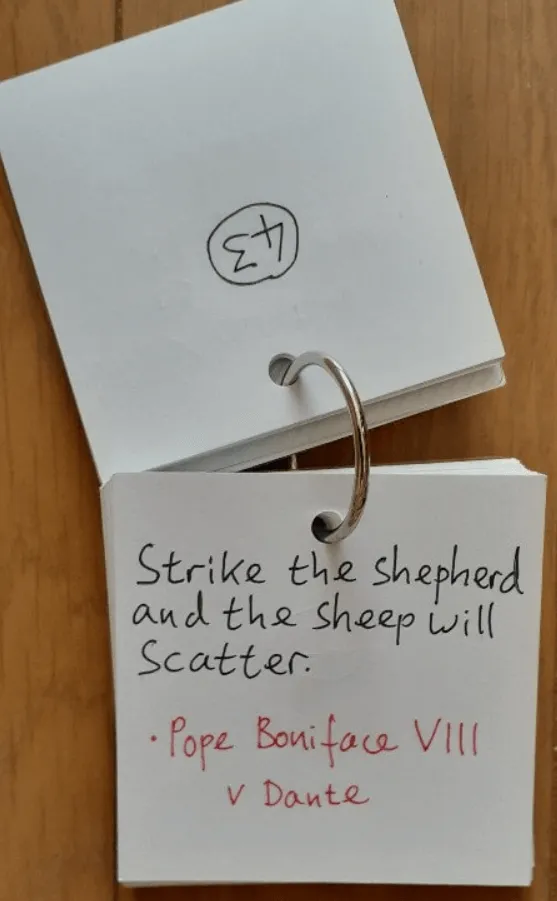 43
Strike the shepherd
and the sheep will
Scatter.
• Pope Boniface VIII
v Dante